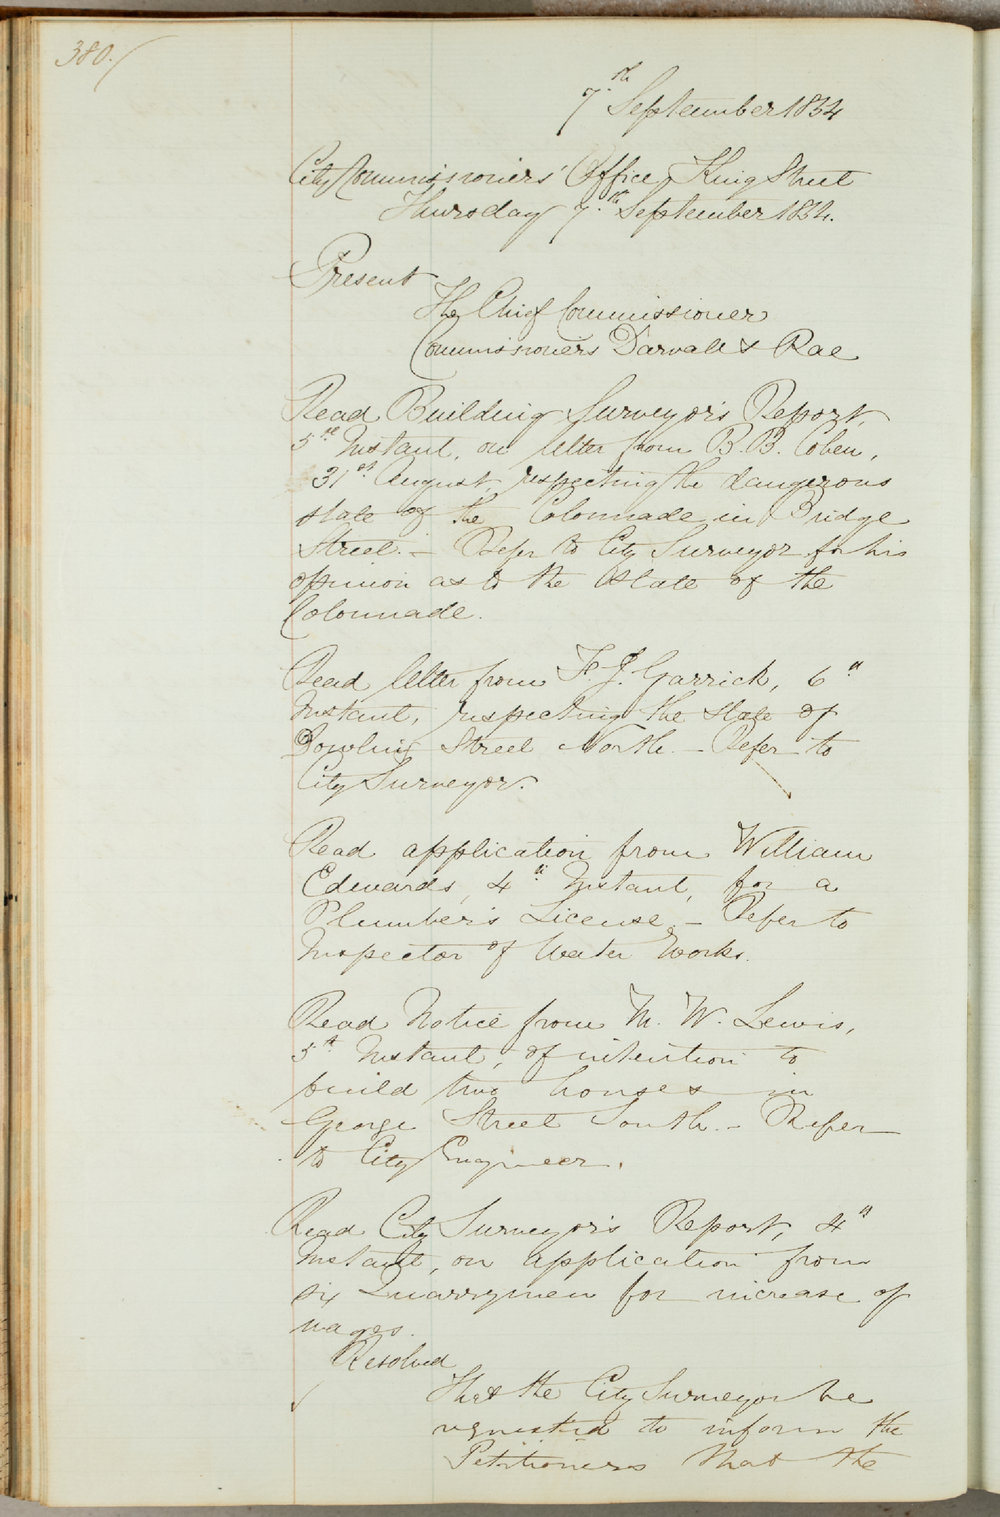 380.
7th September 1854
City Commissioners' Office, King Street
Thursday 7th September 1854.
Present
The Chief Commissioner
Commissioners Darvall & Rae
Read Building Surveyor's Report,
5th Instant, on letter from B. B. Cohen,
31st August, respecting the dangerous
state of the Colonnade in Bridge
Street. - Refer to City Surveyor for his
opinion as to the state of the
Colonnade.
Read letter from F. J. Garrick, 6th
Instant, respecting the state of
Dowling Street North. - Refer to
City Surveyor.
Read application from William
Edwards, 4th Instant, for a
Plumber's License - Refer to
Inspector of Water Works.
Read Notice from M. W. Lewis,
5th Instant, of intention to
build two houses in
George Street South. - Refer
to City Engineer.
Read City Surveyor's Report, 4th
Instant, on application from
six Quarrymen for increase of
wages.
Resolved
That the City Surveyor be
requested to inform the
Petitioners that the